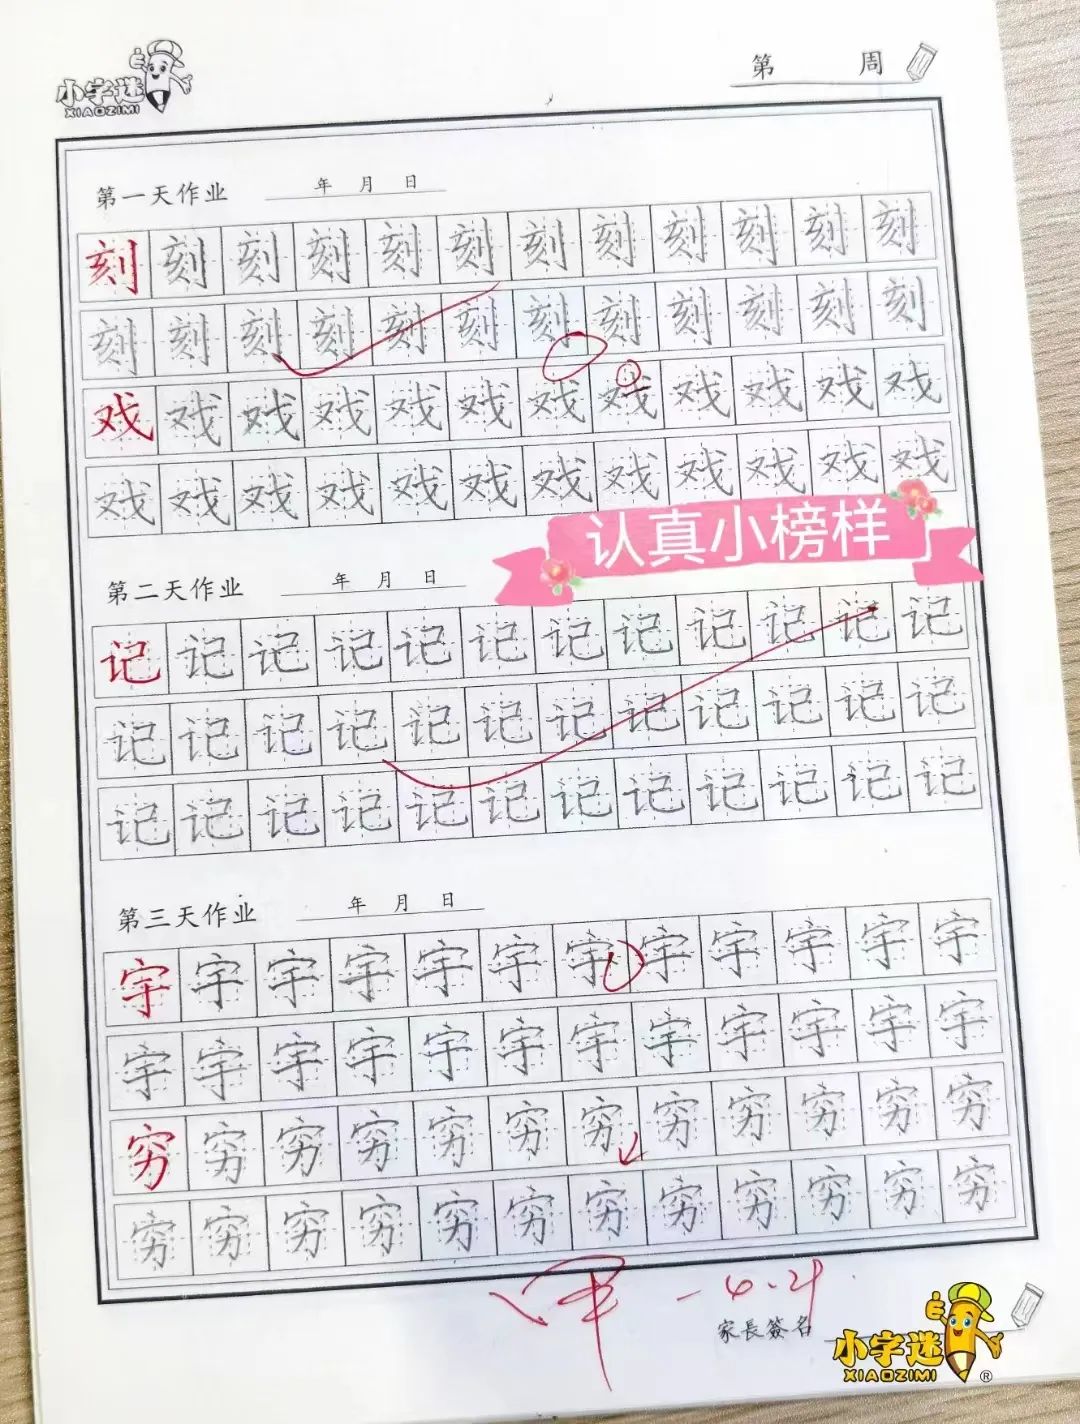 小字迷
XIAOZIMI
第 周
第一天作业 年 月 日
刻刻刻刻刻刻刻刻刻刻刻刻
刻刻刻刻刻刻刻刻刻刻刻刻
戏戏戏戏戏戏戏戏戏戏戏戏
戏戏戏戏戏戏戏戏戏戏戏戏
认真小榜样
第二天作业 年 月 日
记记记记记记记记记记记记
记记记记记记记记记记记记
记记记记记记记记记记记记
第三天作业 年 月 日
宇宇宇宇宇宇宇宇宇宇宇宇
宇宇宇宇宇宇宇宇宇宇宇宇
穷穷穷穷穷穷穷穷穷穷穷穷
穷穷穷穷穷穷穷穷穷穷穷穷
家長簽名
小字迷
XIAOZIMI®